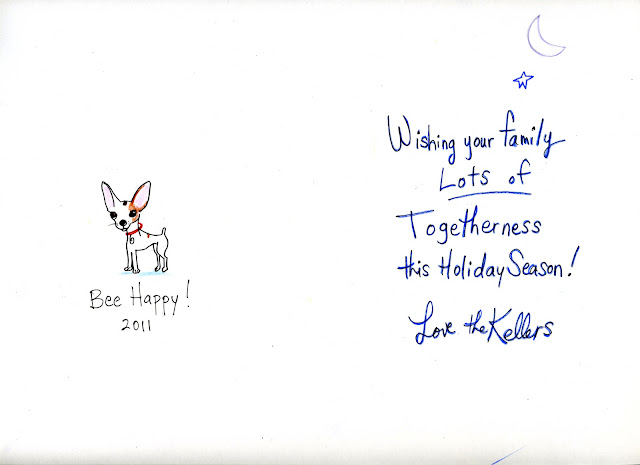 Bee Happy!
2011
Wishing your family
Lots of
Togetherness
this Holiday Season!
Love the Kellers